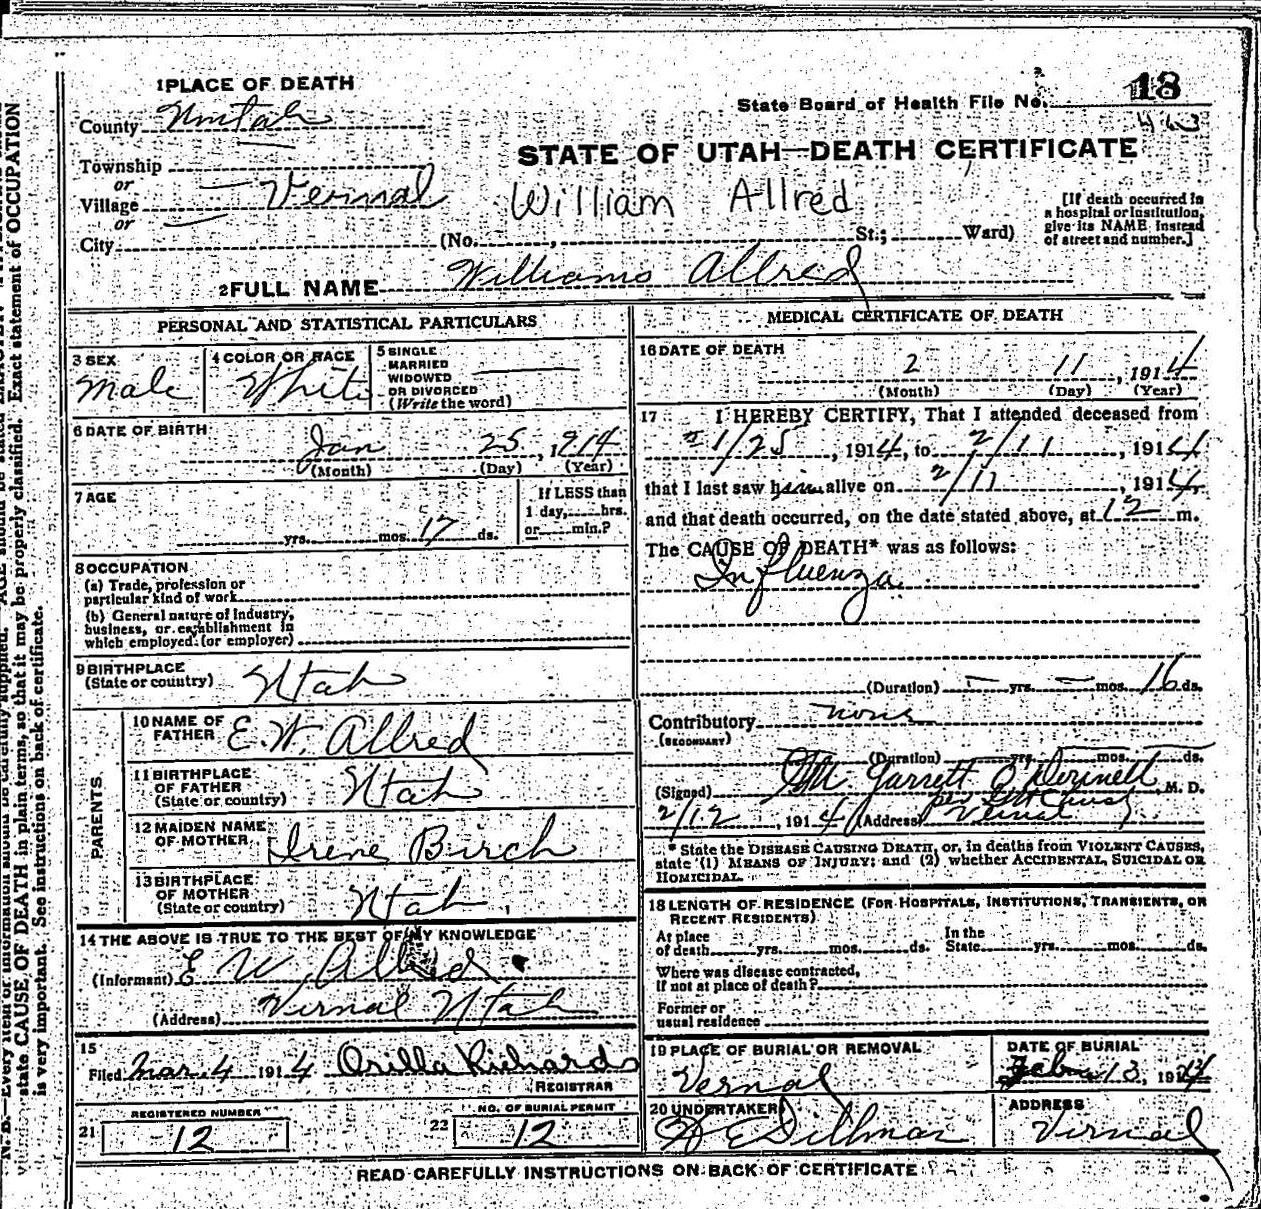 1 PLACE OF DEATH
County Uintah
State Board of Health File No. 18
STATE OF UTAH—DEATH CERTIFICATE
Township
or
Village Vernal
or
City (No. , St.; Ward)
William Allred
[If death occurred in a hospital or institution, give its NAME instead of street and number.]
2 FULL NAME Williams Allred
PERSONAL AND STATISTICAL PARTICULARS
3 SEX
Male
4 COLOR OR RACE
White
5 SINGLE
MARRIED
WIDOWED
OR DIVORCED
(Write the word)
6 DATE OF BIRTH
Jan 25, 1914
(Month) (Day) (Year)
7 AGE
yrs. mos. 17 ds.
If LESS than
1 day, hrs.
or min.?
8 OCCUPATION
(a) Trade, profession or
particular kind of work
(b) General nature of industry,
business, or establishment in
which employed (or employer)
9 BIRTHPLACE
(State or country) Utah
PARENTS
10 NAME OF
FATHER E. W. Allred
11 BIRTHPLACE
OF FATHER
(State or country) Utah
12 MAIDEN NAME
OF MOTHER Irene Birch
13 BIRTHPLACE
OF MOTHER
(State or country) Utah
14 THE ABOVE IS TRUE TO THE BEST OF MY KNOWLEDGE
(Informant) E W Allred
(Address) Vernal Utah
15
Filed Mar. 4 1914 Orilla Richards
REGISTRAR
REGISTERED NUMBER
21 12
NO. OF BURIAL PERMIT
22 12
MEDICAL CERTIFICATE OF DEATH
16 DATE OF DEATH
2 11, 1914
(Month) (Day) (Year)
17 I HEREBY CERTIFY, That I attended deceased from
1/25, 1914, to 2/11, 1914
that I last saw him alive on 2/11, 1914,
and that death occurred, on the date stated above, at 12 m.
The CAUSE OF DEATH* was as follows:
Influenza
(Duration) — yrs. — mos. 16 ds.
Contributory none
(SECONDARY)
(Duration) yrs. mos. ds.
(Signed) Garrett M. D.
2/12, 1914 (Address) Vernal
* State the DISEASE CAUSING DEATH, or, in deaths from VIOLENT CAUSES,
state (1) MEANS OF INJURY; and (2) whether ACCIDENTAL, SUICIDAL OR
HOMICIDAL.
18 LENGTH OF RESIDENCE (FOR HOSPITALS, INSTITUTIONS, TRANSIENTS, OR
RECENT RESIDENTS)
At place
of death yrs. mos. ds.
In the
State yrs. mos. ds.
Where was disease contracted,
if not at place of death?
Former or
usual residence
19 PLACE OF BURIAL OR REMOVAL
Vernal
DATE OF BURIAL
Feb 13, 1914
20 UNDERTAKER
Dillman
ADDRESS
Vernal
READ CAREFULLY INSTRUCTIONS ON BACK OF CERTIFICATE
state CAUSE OF DEATH in plain terms, so that it may be properly classified. Exact statement of OCCUPATION
is very important. See instructions on back of certificate.